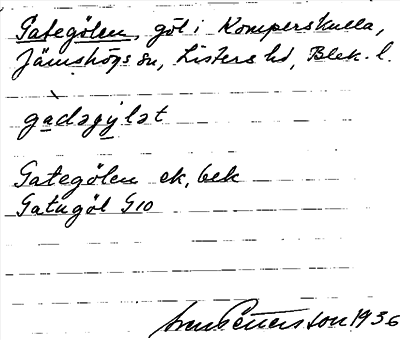 Gategölen, göl i Komperskulla,
Jämshögs sn, Listers hd, Blek. l.
gadəgyl̥ət
Gategölen ek, bek
Gatugöl G10
Pettersson 1936